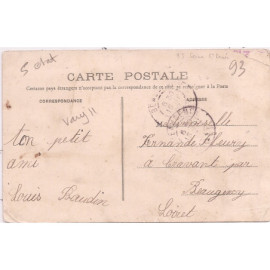 5 chet
93
CARTE POSTALE
Certains pays étrangers n'acceptent pas la correspondance de ce côté, se renseigner à la Poste
CORRESPONDANCE
ADRESSE
Vary !!
ton petit
ami
Louis Baudin
Mademoiselle
Fernande Fleury
à Cravant par
Beaugency
Loiret